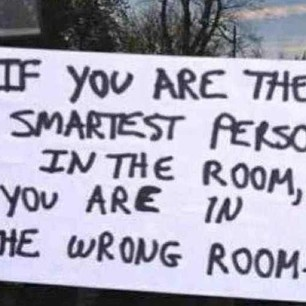 IF YOU ARE THE
SMARTEST PERSO
IN THE ROOM,
YOU ARE IN
HE WRONG ROOM.